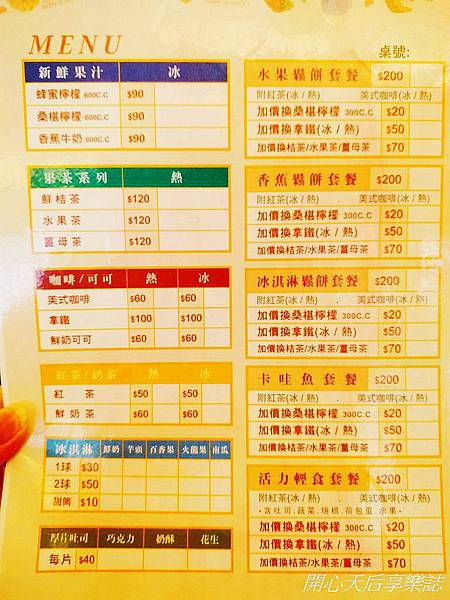 MENU
桌號:
新鮮果汁 冰
蜂蜜檸檬 600C.C $90
桑椹檸檬 600C.C $90
香蕉牛奶 600C.C $90
果茶系列 熱
鮮桔茶 $120
水果茶 $120
薑母茶 $120
咖啡/可可 熱 冰
美式咖啡 $60 $60
拿鐵 $100 $100
鮮奶可可 $60 $60
紅茶/奶茶 熱 冰
紅茶 $50 $50
鮮奶茶 $60 $60
冰淇淋 鮮奶 芋頭 百香果 火龍果 南瓜
1球 $30
2球 $50
甜筒 $10
厚片吐司 巧克力 奶酥 花生
每片 $40
水果鬆餅套餐 $200
附紅茶(冰/熱) . 美式咖啡(冰/熱)
加價換桑椹檸檬 300C.C $20
加價換拿鐵(冰/熱) $50
加價換桔茶/水果茶/薑母茶 $70
香蕉鬆餅套餐 $200
附紅茶(冰/熱) . 美式咖啡(冰/熱)
加價換桑椹檸檬 300C.C $20
加價換拿鐵(冰/熱) $50
加價換桔茶/水果茶/薑母茶 $70
冰淇淋鬆餅套餐 $200
附紅茶(冰/熱) . 美式咖啡(冰/熱)
加價換桑椹檸檬 300C.C $20
加價換拿鐵(冰/熱) $50
加價換桔茶/水果茶/薑母茶 $70
卡哇魚套餐 $200
附紅茶(冰/熱) . 美式咖啡(冰/熱)
加價換桑椹檸檬 300C.C $20
加價換拿鐵(冰/熱) $50
加價換桔茶/水果茶/薑母茶 $70
活力輕食套餐 $200
附紅茶(冰/熱) . 美式咖啡(冰/熱)
·含吐司.蔬菜.培根.荷包蛋.水果·
加價換桑椹檸檬 300C.C $20
加價換拿鐵(冰/熱) $50
加價換桔茶/水果茶/薑母茶 $70
開心天后享樂誌